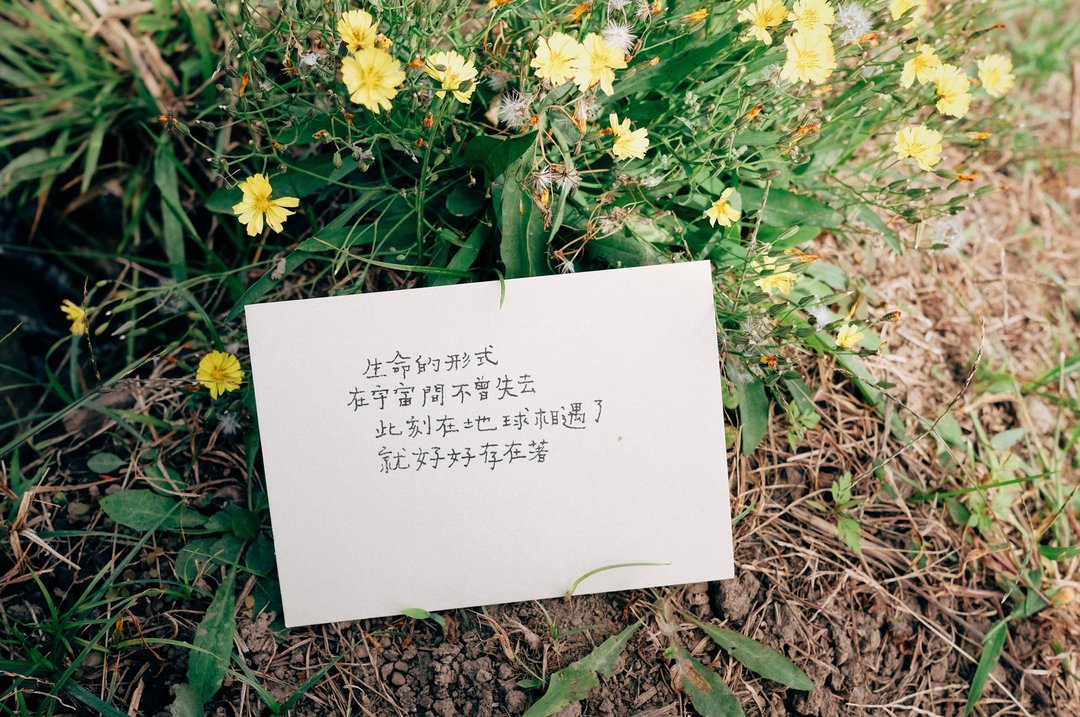 生命的形式
在宇宙間不曾失去
此刻在地球相遇了
就好好存在著